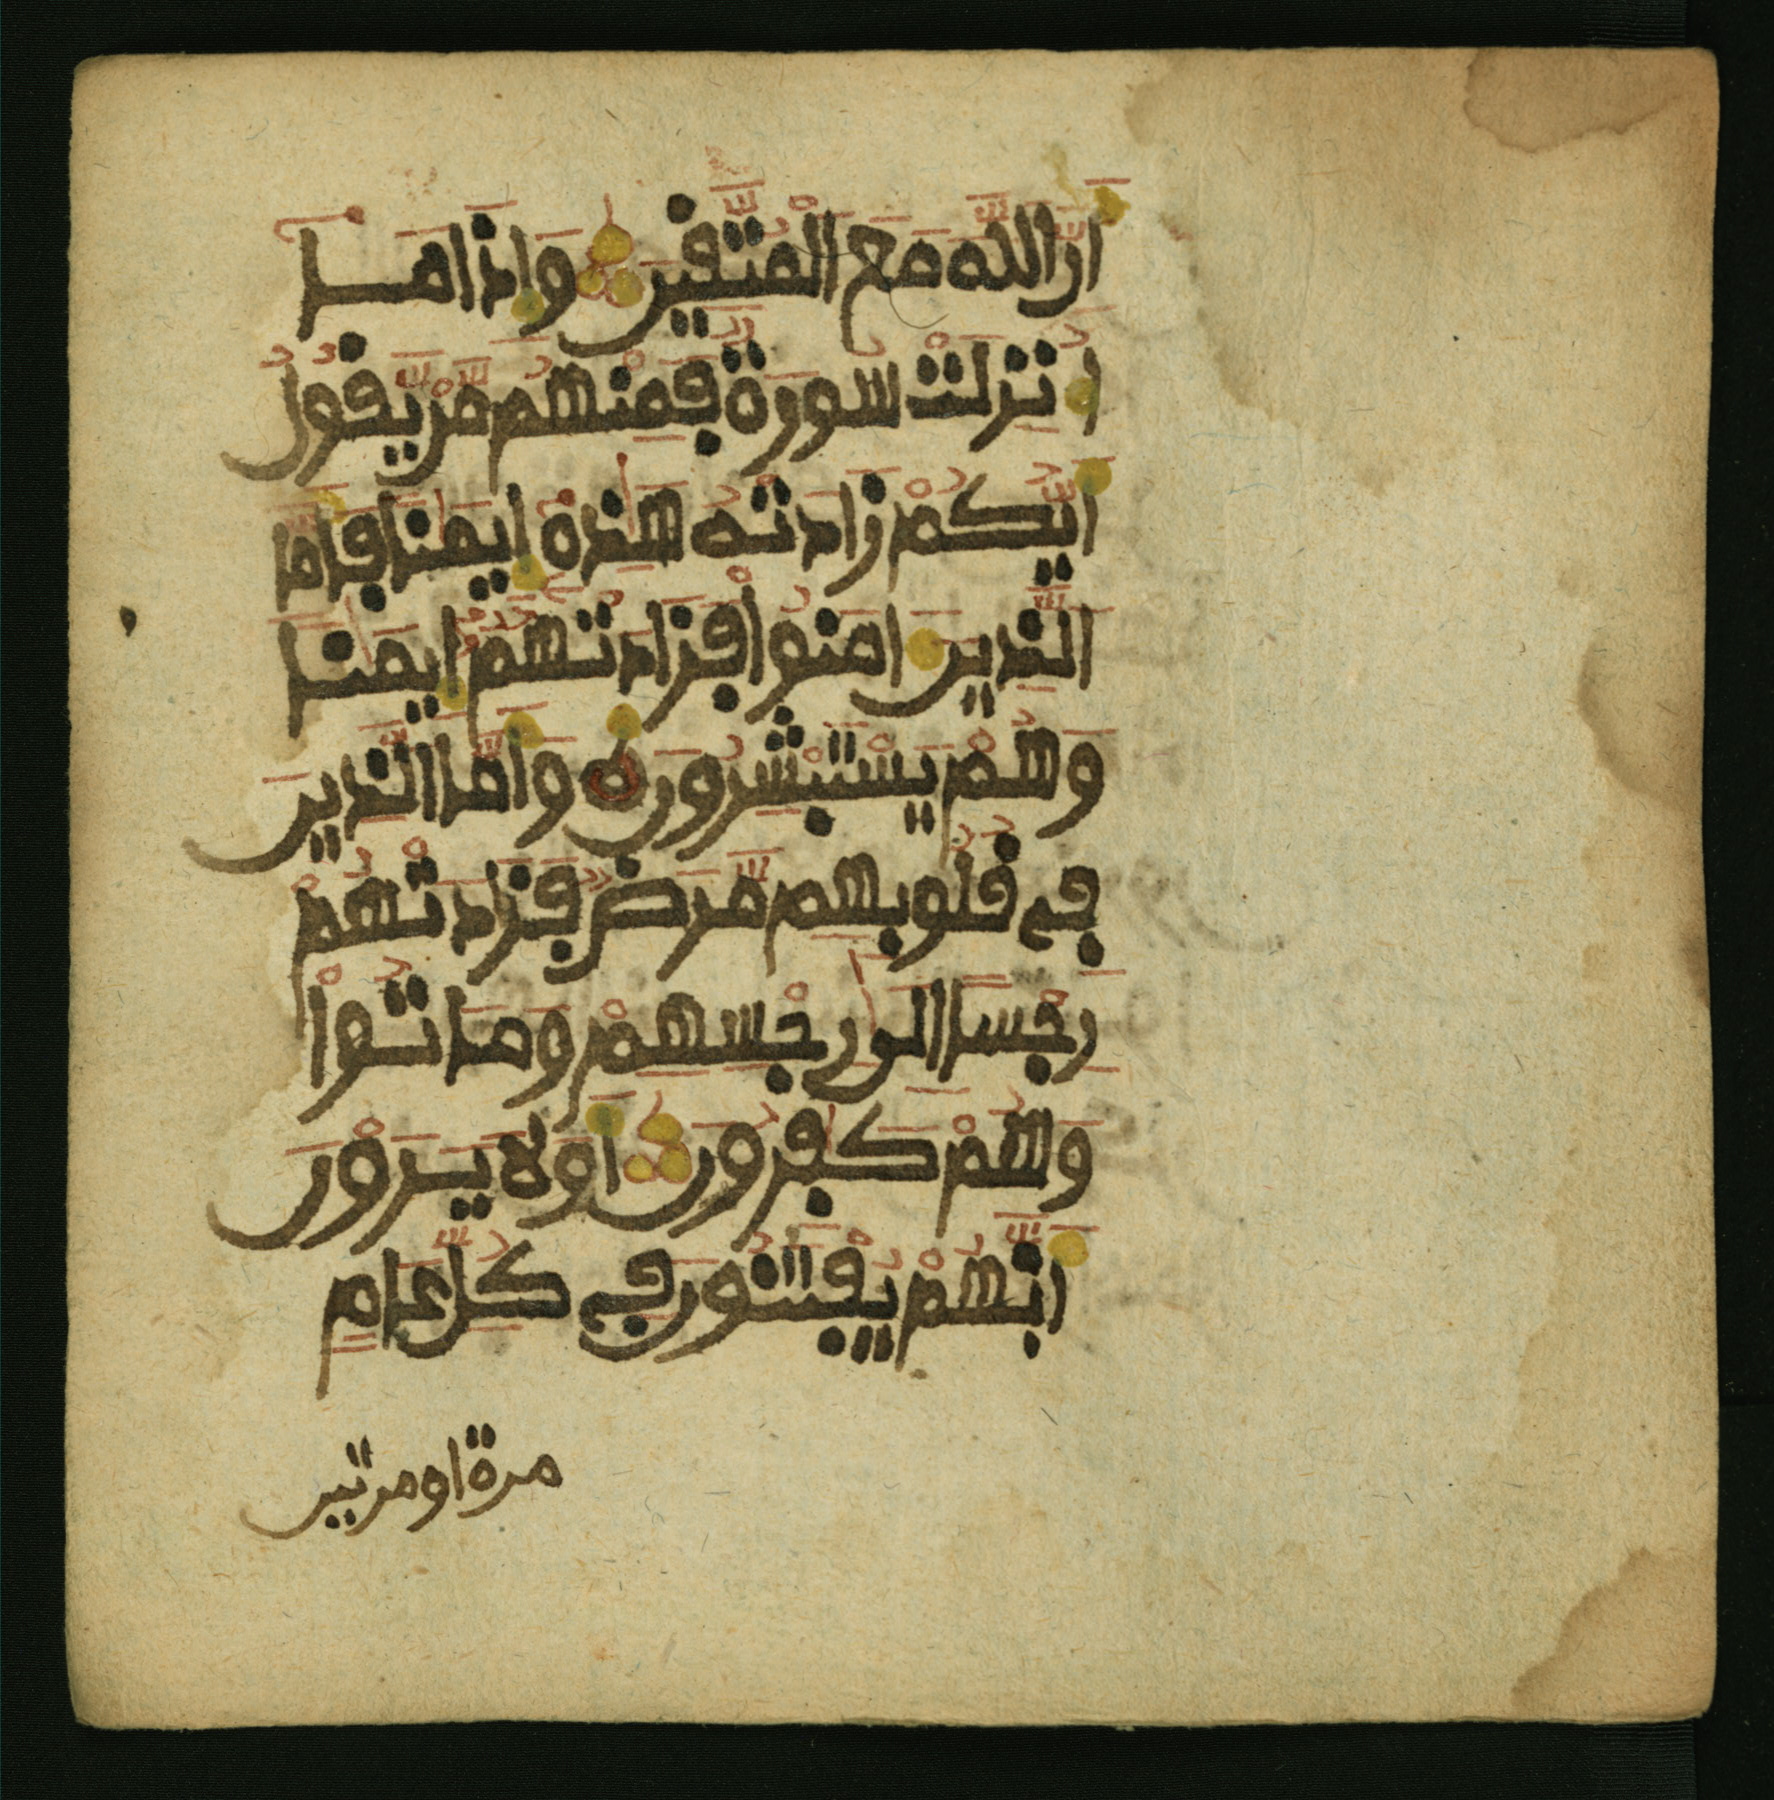 ان الله مع المتقين واذا ما
انزلت سورة فمنهم من يقول
ايكم زادته هذه ايمنا فاما
الذين امنوا فزادتهم ايمنا
وهم يستبشرون ه واما الذين
في قلوبهم مرض فزادتهم
رجسا الى رجسهم وماتوا
وهم كفرون اولا يرون
انهم يفتنون في كل عام
مرة او مرتين